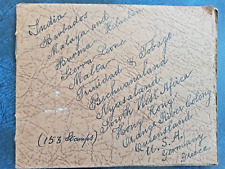 India
Barbados
Malaya and
Burma
Sierra Leone
Malta
Trinidad & Tobago
Bechuanaland
Nyasaland
South West Africa
Hong Kong
Orange River Colony
Queensland
U.S.A.
Germany
(153 Stamps)